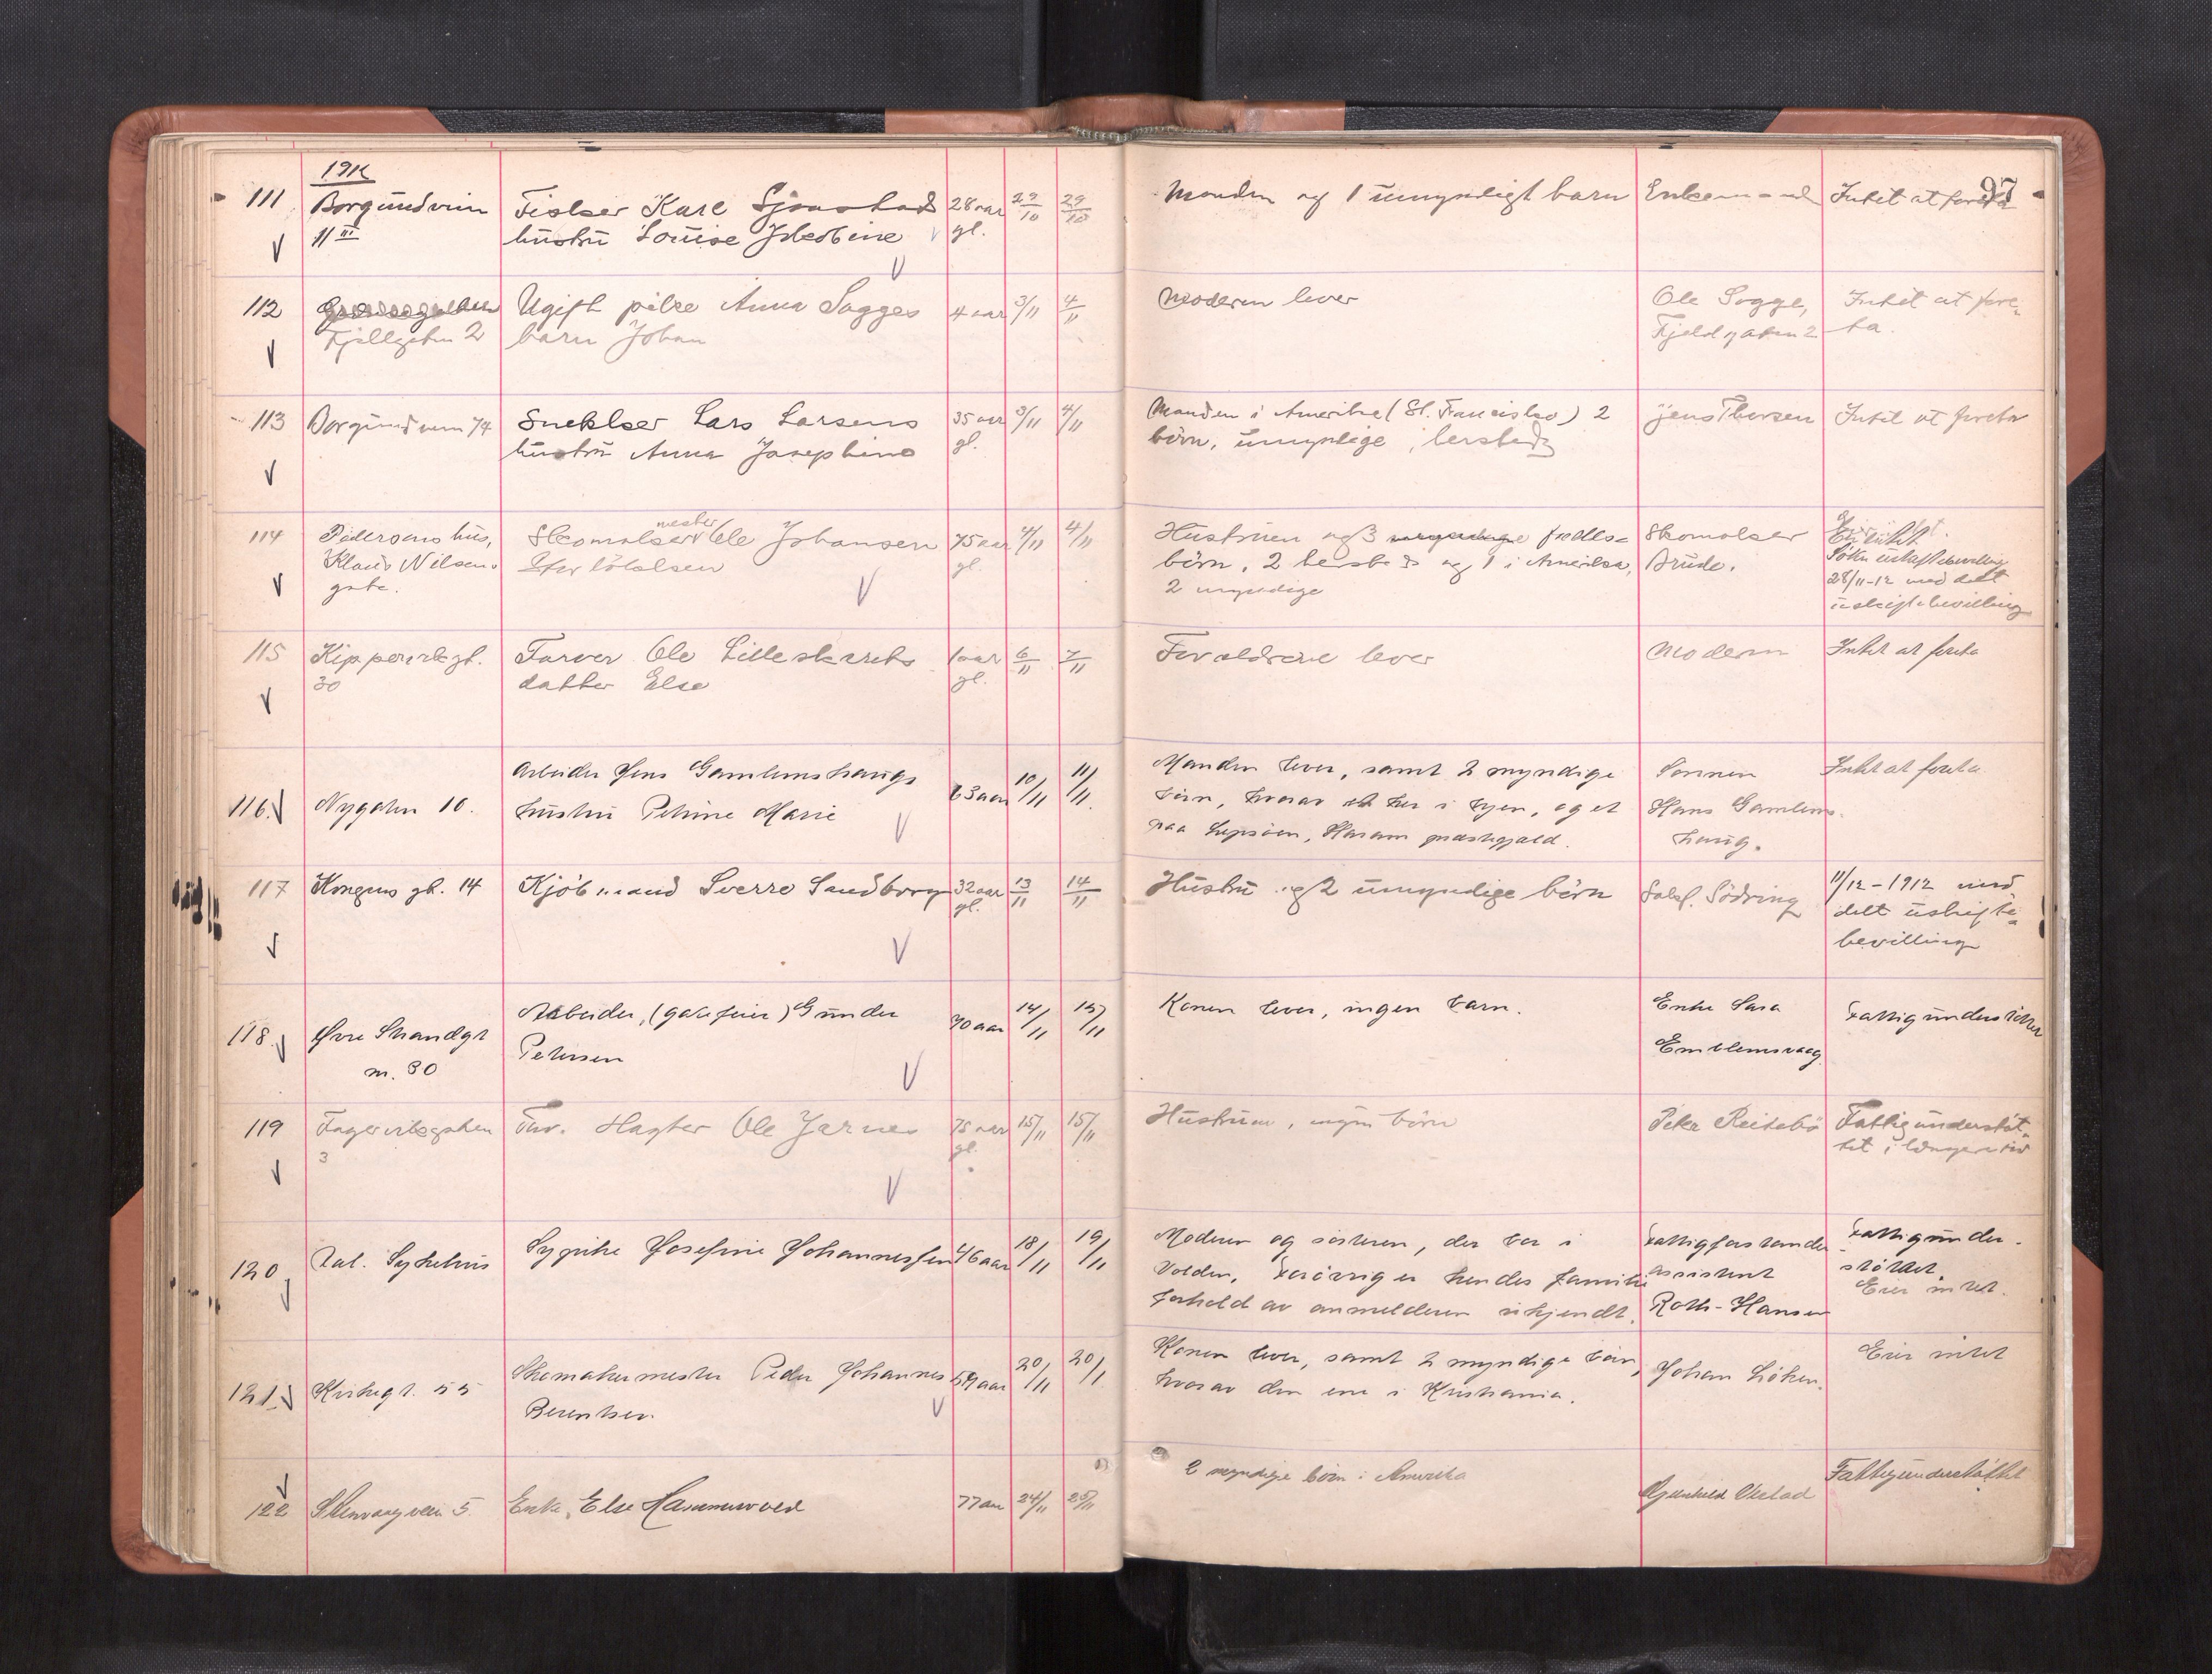 1912
97
111 Borgundvein Fisker Karl Sjaastad 28 aar 29/10 29/10 Manden og 1 umyndigt barn Enkemand Intet at foreta
11 III hustru Louise gl.
112 Fjellgaten 2 Ugift pike Anna Sogges 4 aar 3/11 4/11 Moderen lever Ole Sogge, Intet at fore-
barn Johan Fjeldgaten 2 ta.
113 Borgundvein 74 Snekker Lars Larsens 35 aar 3/11 4/11 Manden i Amerika (St. Francisko) 2 Jens Thorsen Intet at foreta
hustru Anna Josephine gl. börn, umyndige, hersteds
114 Pedersens hus, Skomakermester Ole Johansen 75 aar 4/11 4/11 Hustruen og 3 fælles- Skomaker Eier intet.
Klaus Nilsens gl. börn, 2 hersteds og 1 i Amerika, Brude. Söker uskiftebevilling
gate. 2 myndige 28/11-12 meddelt
uskiftebevilling
115 Kipperviksgt. Farver Ole Lilleskarets 1 aar 6/11 7/11 Forældrene lever Moderen Intet at foreta
30 datter Else gl.
116. Nygaten 10. Arbeider Jens Gamlemshaugs 63 aar 10/11 11/11 Manden lever, samt 2 myndige Sönnen Intet at foreta
hustru Petrine Marie börn, hvorav et her i byen, og et Hans Gamlems-
paa Lepsöen, Haram præstegjæld. haug.
117 Kongens gt. 14 Kjöbmand Sverre Sandborg 32 aar 13/11 14/11 Hustru og 2 umyndige börn Södring 11/12-1912 med-
gl. delt uskifte-
bevilling
118. Övre Strandgt Arbeider, (gatefeier) Gunder 70 aar 14/11 15/11 Konen lever, ingen barn. Enke Sara Fattigunderstöttet
nr. 30 Petersen Emblemsvaag
119 Fagerviksgaten Fhv. Ole Jarnes 75 aar 15/11 15/11 Hustruen, ingen börn Peter Reitebö Fattigunderstöt-
3 gl. tet i længere tid
120 Kat. Sykehus Sypike Josefine Johannessen 46 aar 18/11 19/11 Moderen og sösteren, der bor i Fattigforstander Fattigunder-
Volden, forövrig er hendes familie assistent støttet
forhold av anmelderen ukjendt. Roth-Hansen Eier intet.
121. Kirkegt. 55 Skomakermester Peder Johannes 59 aar 20/11 20/11 Konen lever, samt 2 myndige barn, Johan Löken. Eier intet
Berentsen. hvorav den ene i Kristiania.
122 Stenvaagveien 5. Enke Else Hammervold 77 aar 24/11 25/11 2 myndige börn i Amerika Fattigunderstöttet